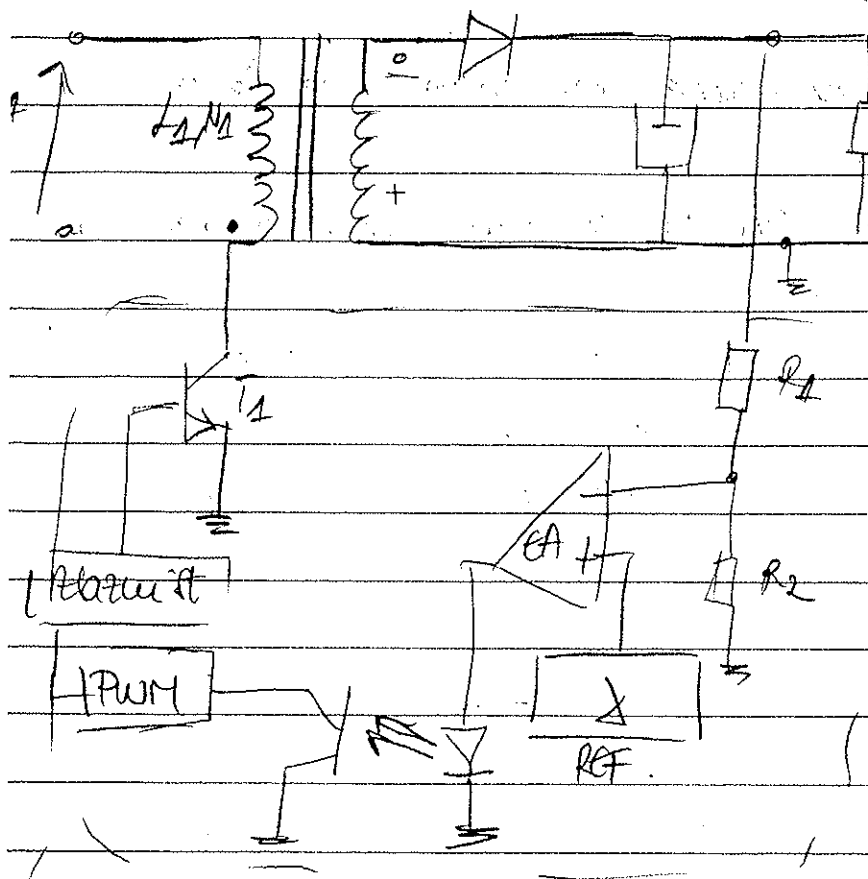 L1,N1
+
T1
R1
EA
+
R2
PWM
REF.